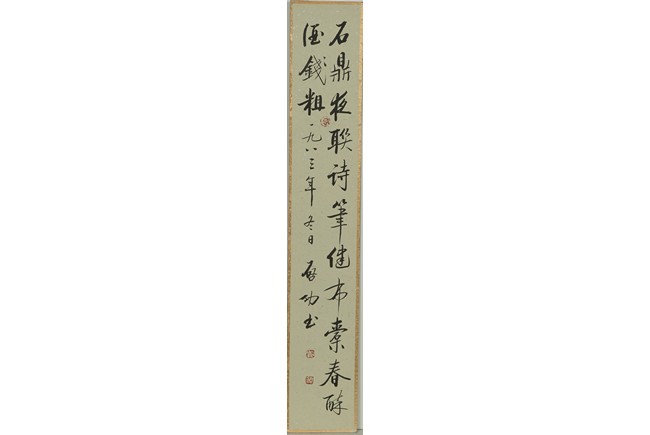 石鼎夜聯詩筆健布囊春醉
酒錢粗一九八三年冬日啓功書